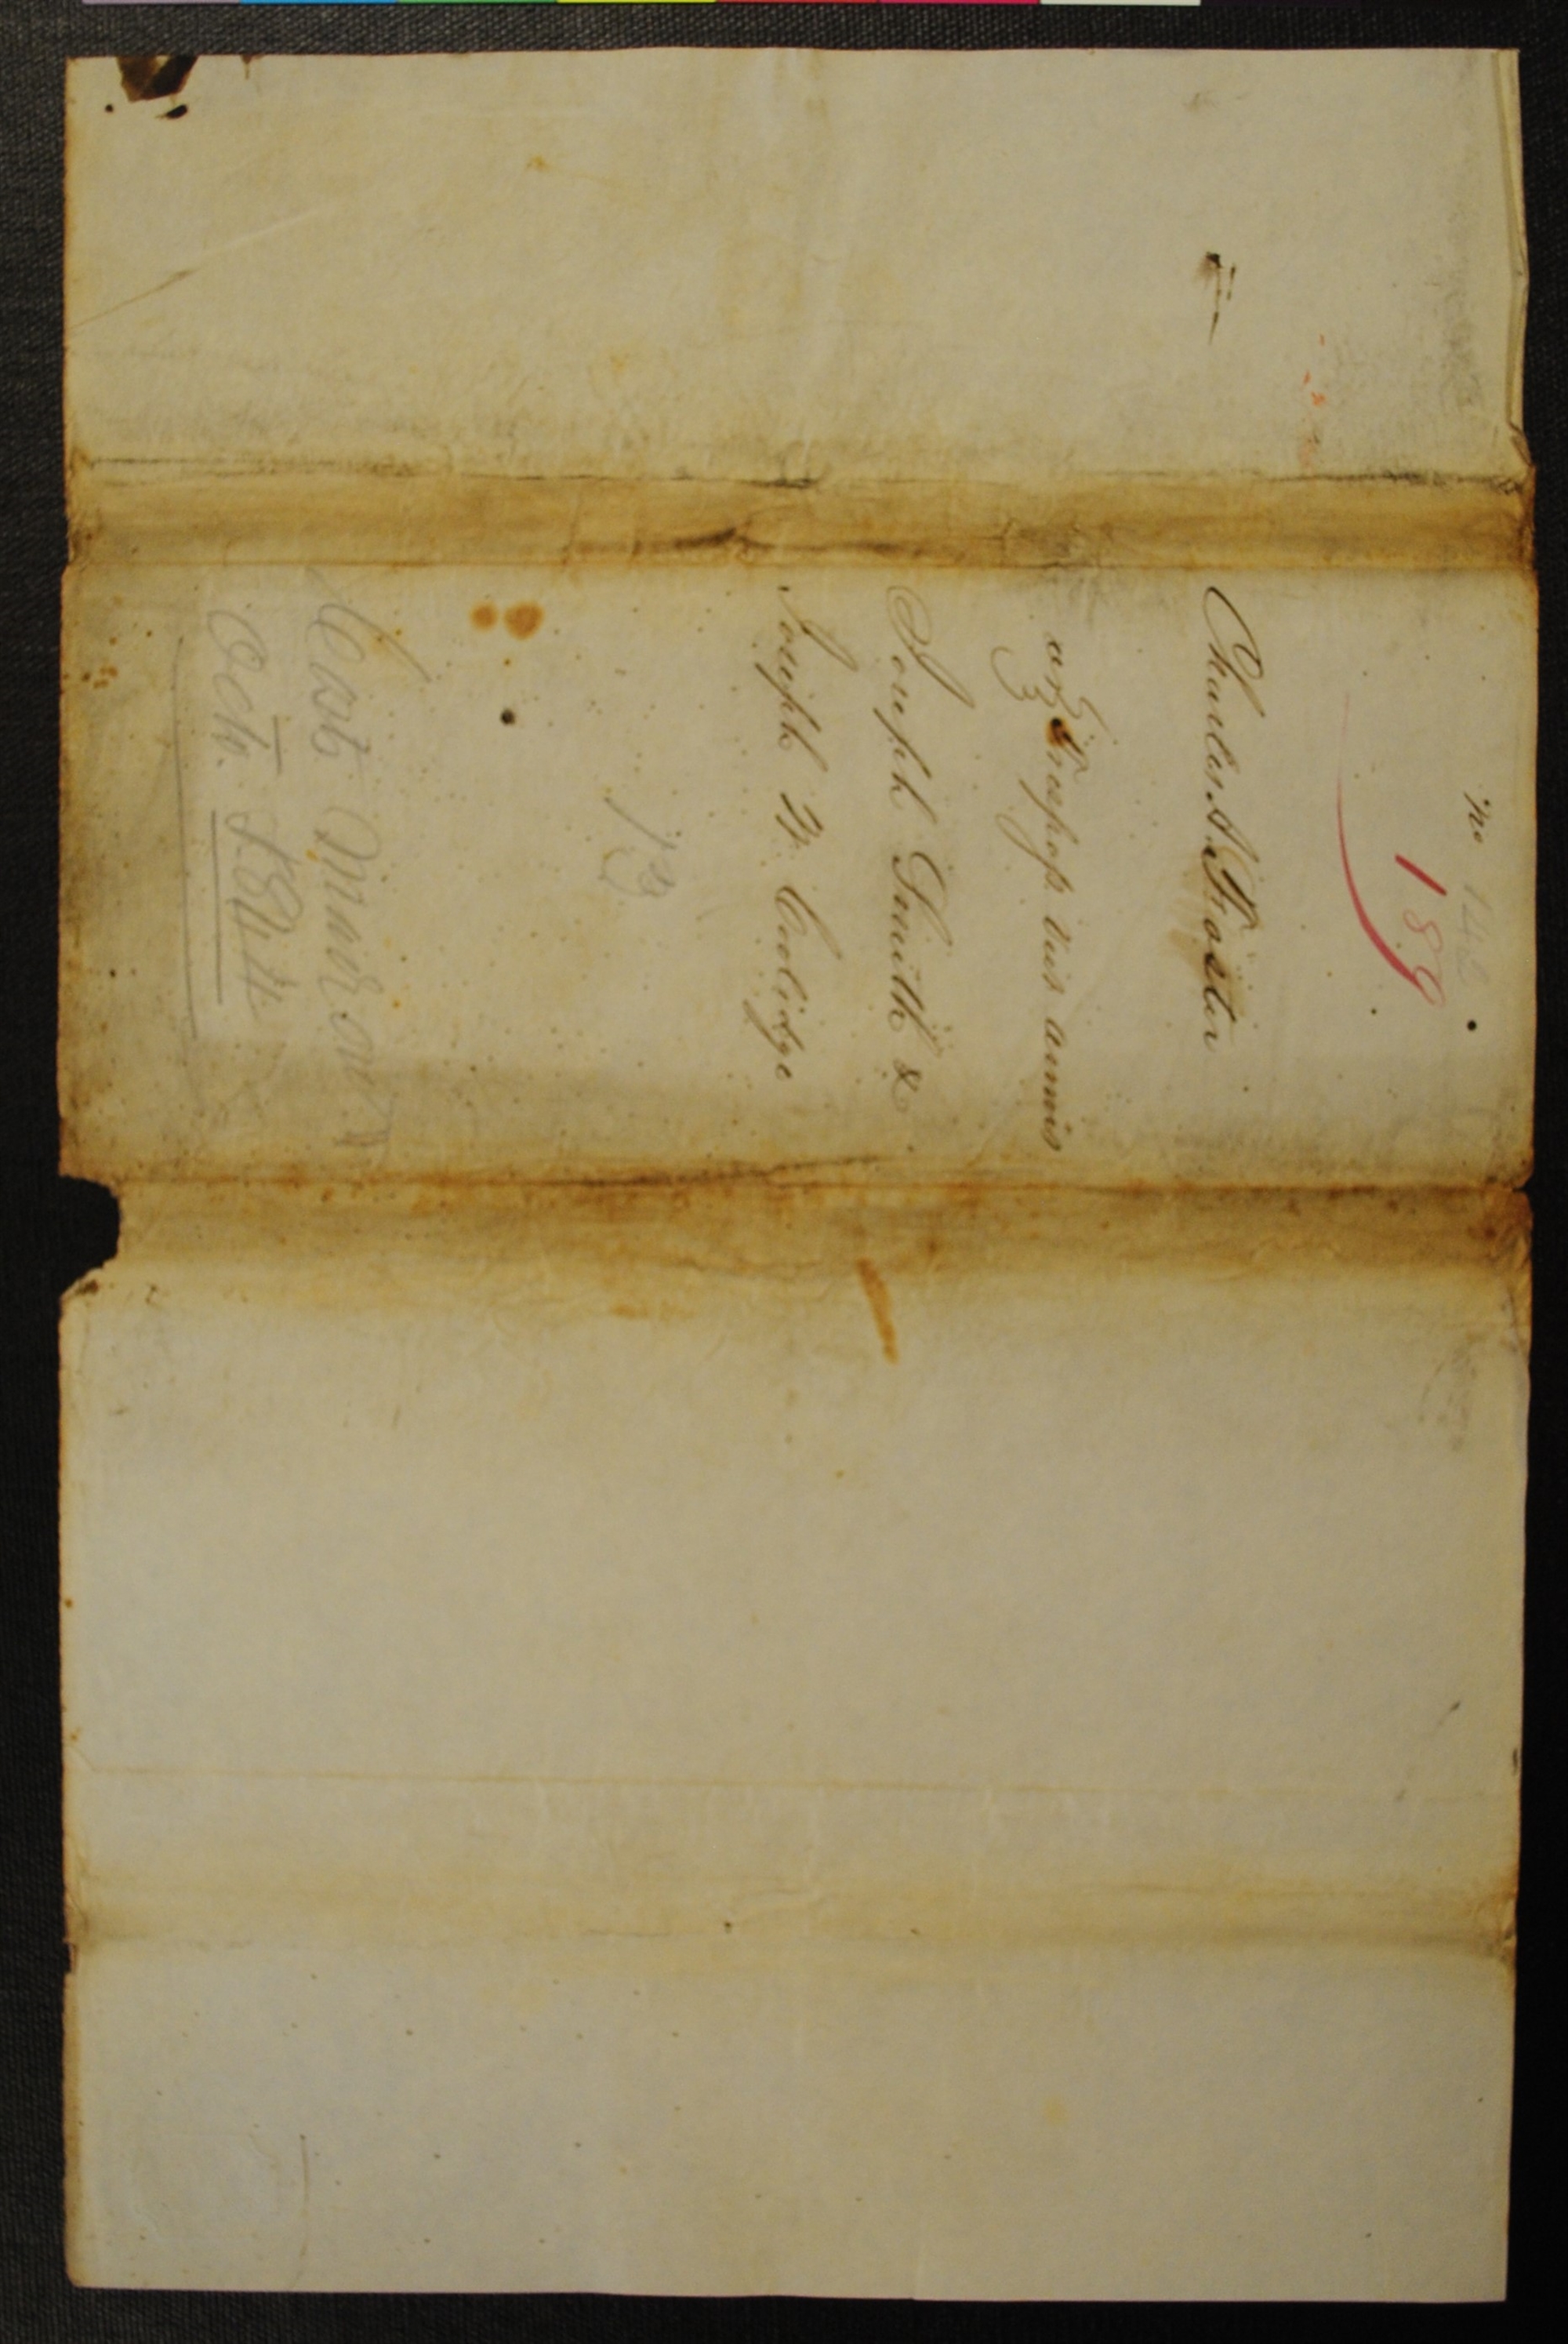 No 142
189
Charles A. Foster
as } Trespass vi et armis
Joseph Smith &
Joseph W. Coolidge
13
Cost
Oct. 1844